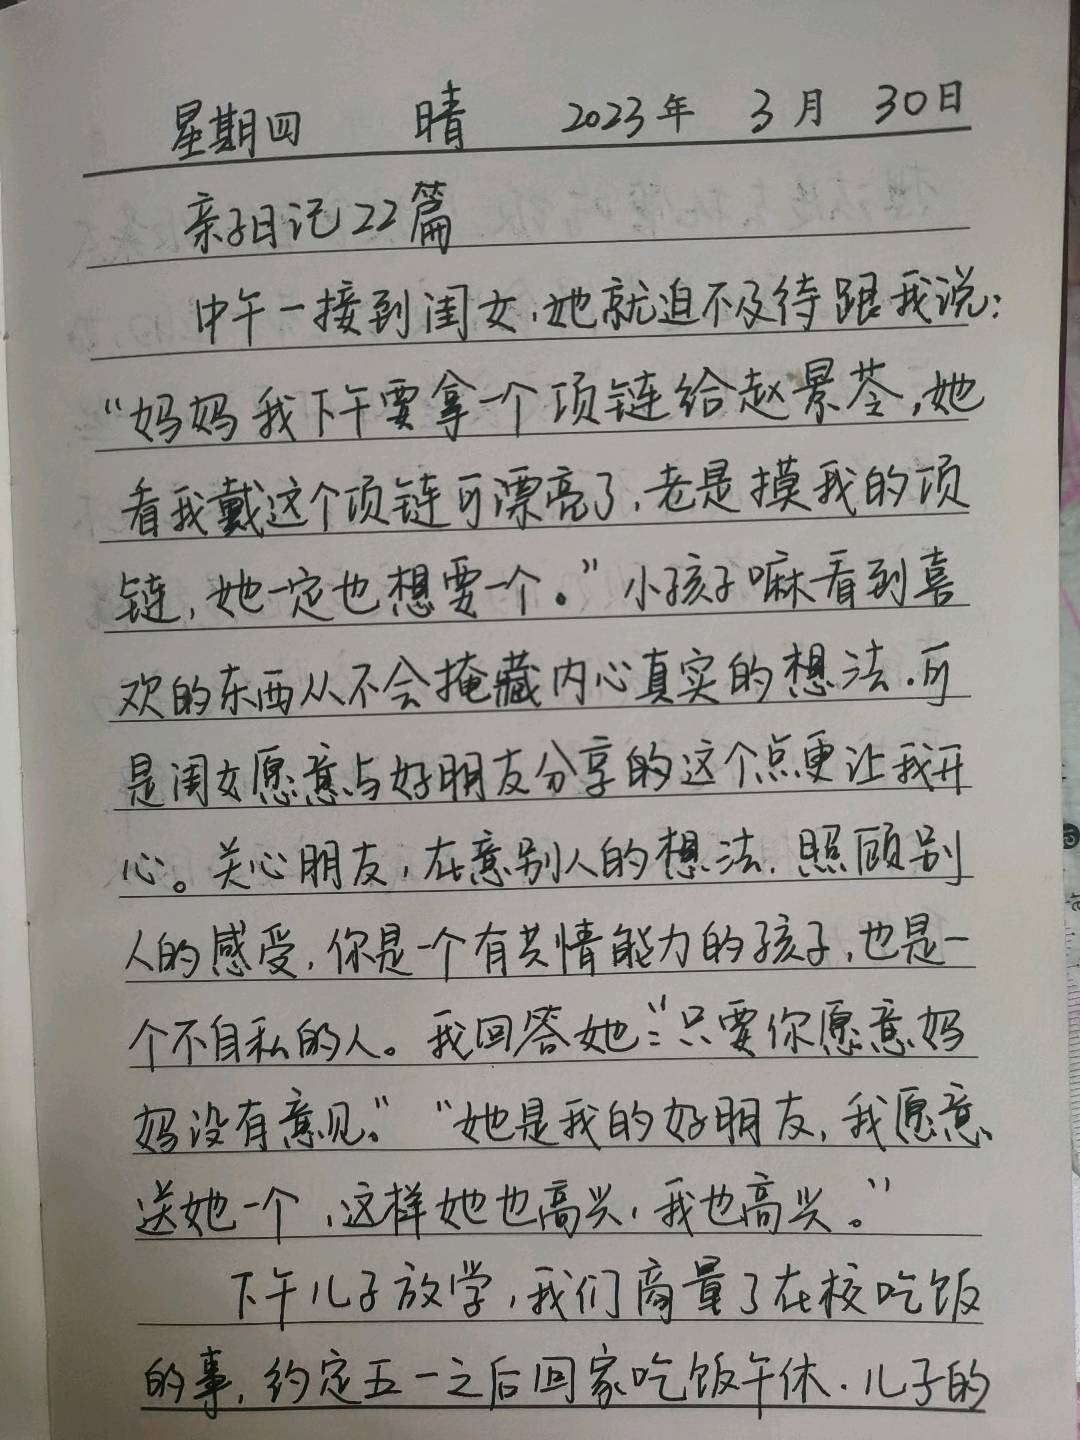 星期四 晴 2023年 3月 30日
亲子日记22篇
中午一接到闺女,她就迫不及待跟我说:
“妈妈我下午要拿一个项链给赵景苓,她
看我戴这个项链可漂亮了,老是摸我的项
链,她一定也想要一个。”小孩子嘛看到喜
欢的东西从不会掩藏内心真实的想法.可
是闺女愿意与好朋友分享的这个点更让我开
心。关心朋友,在意别人的想法.照顾别
人的感受,你是一个有共情能力的孩子,也是一
个不自私的人。我回答她:“只要你愿意妈
妈没有意见。”“她是我的好朋友,我愿意
送她一个,这样她也高兴,我也高兴。”
下午儿子放学,我们商量了在校吃饭
的事,约定五一之后回家吃饭午休.儿子的